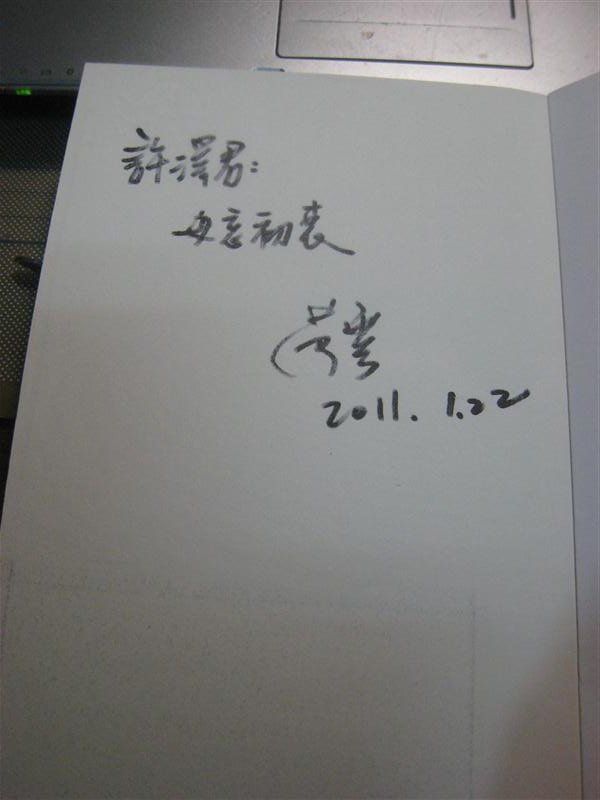 許澤君:
毋忘初衷
2011. 1.22